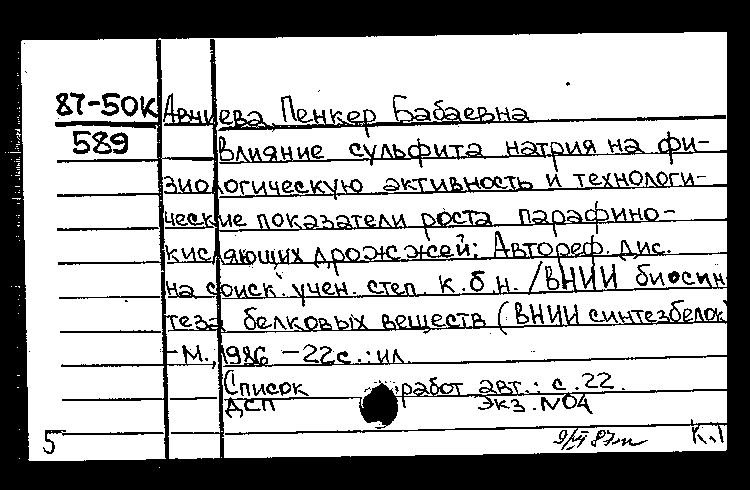 87-50К Авчиева, Пенкер Бабаевна
589 Влияние сульфита натрия на фи-
зиологическую активность и технологи-
ческие показатели роста парафино-
кисляющих дрожжей: Автореф. дис.
на соиск. учен. степ. к.б.н. /ВНИИ биосин
теза белковых веществ (ВНИИ синтезбелок
-М., 1986 -22с.:ил.
Список работ авт.: с.22.
ДСП экз. №04
5 87 К.1